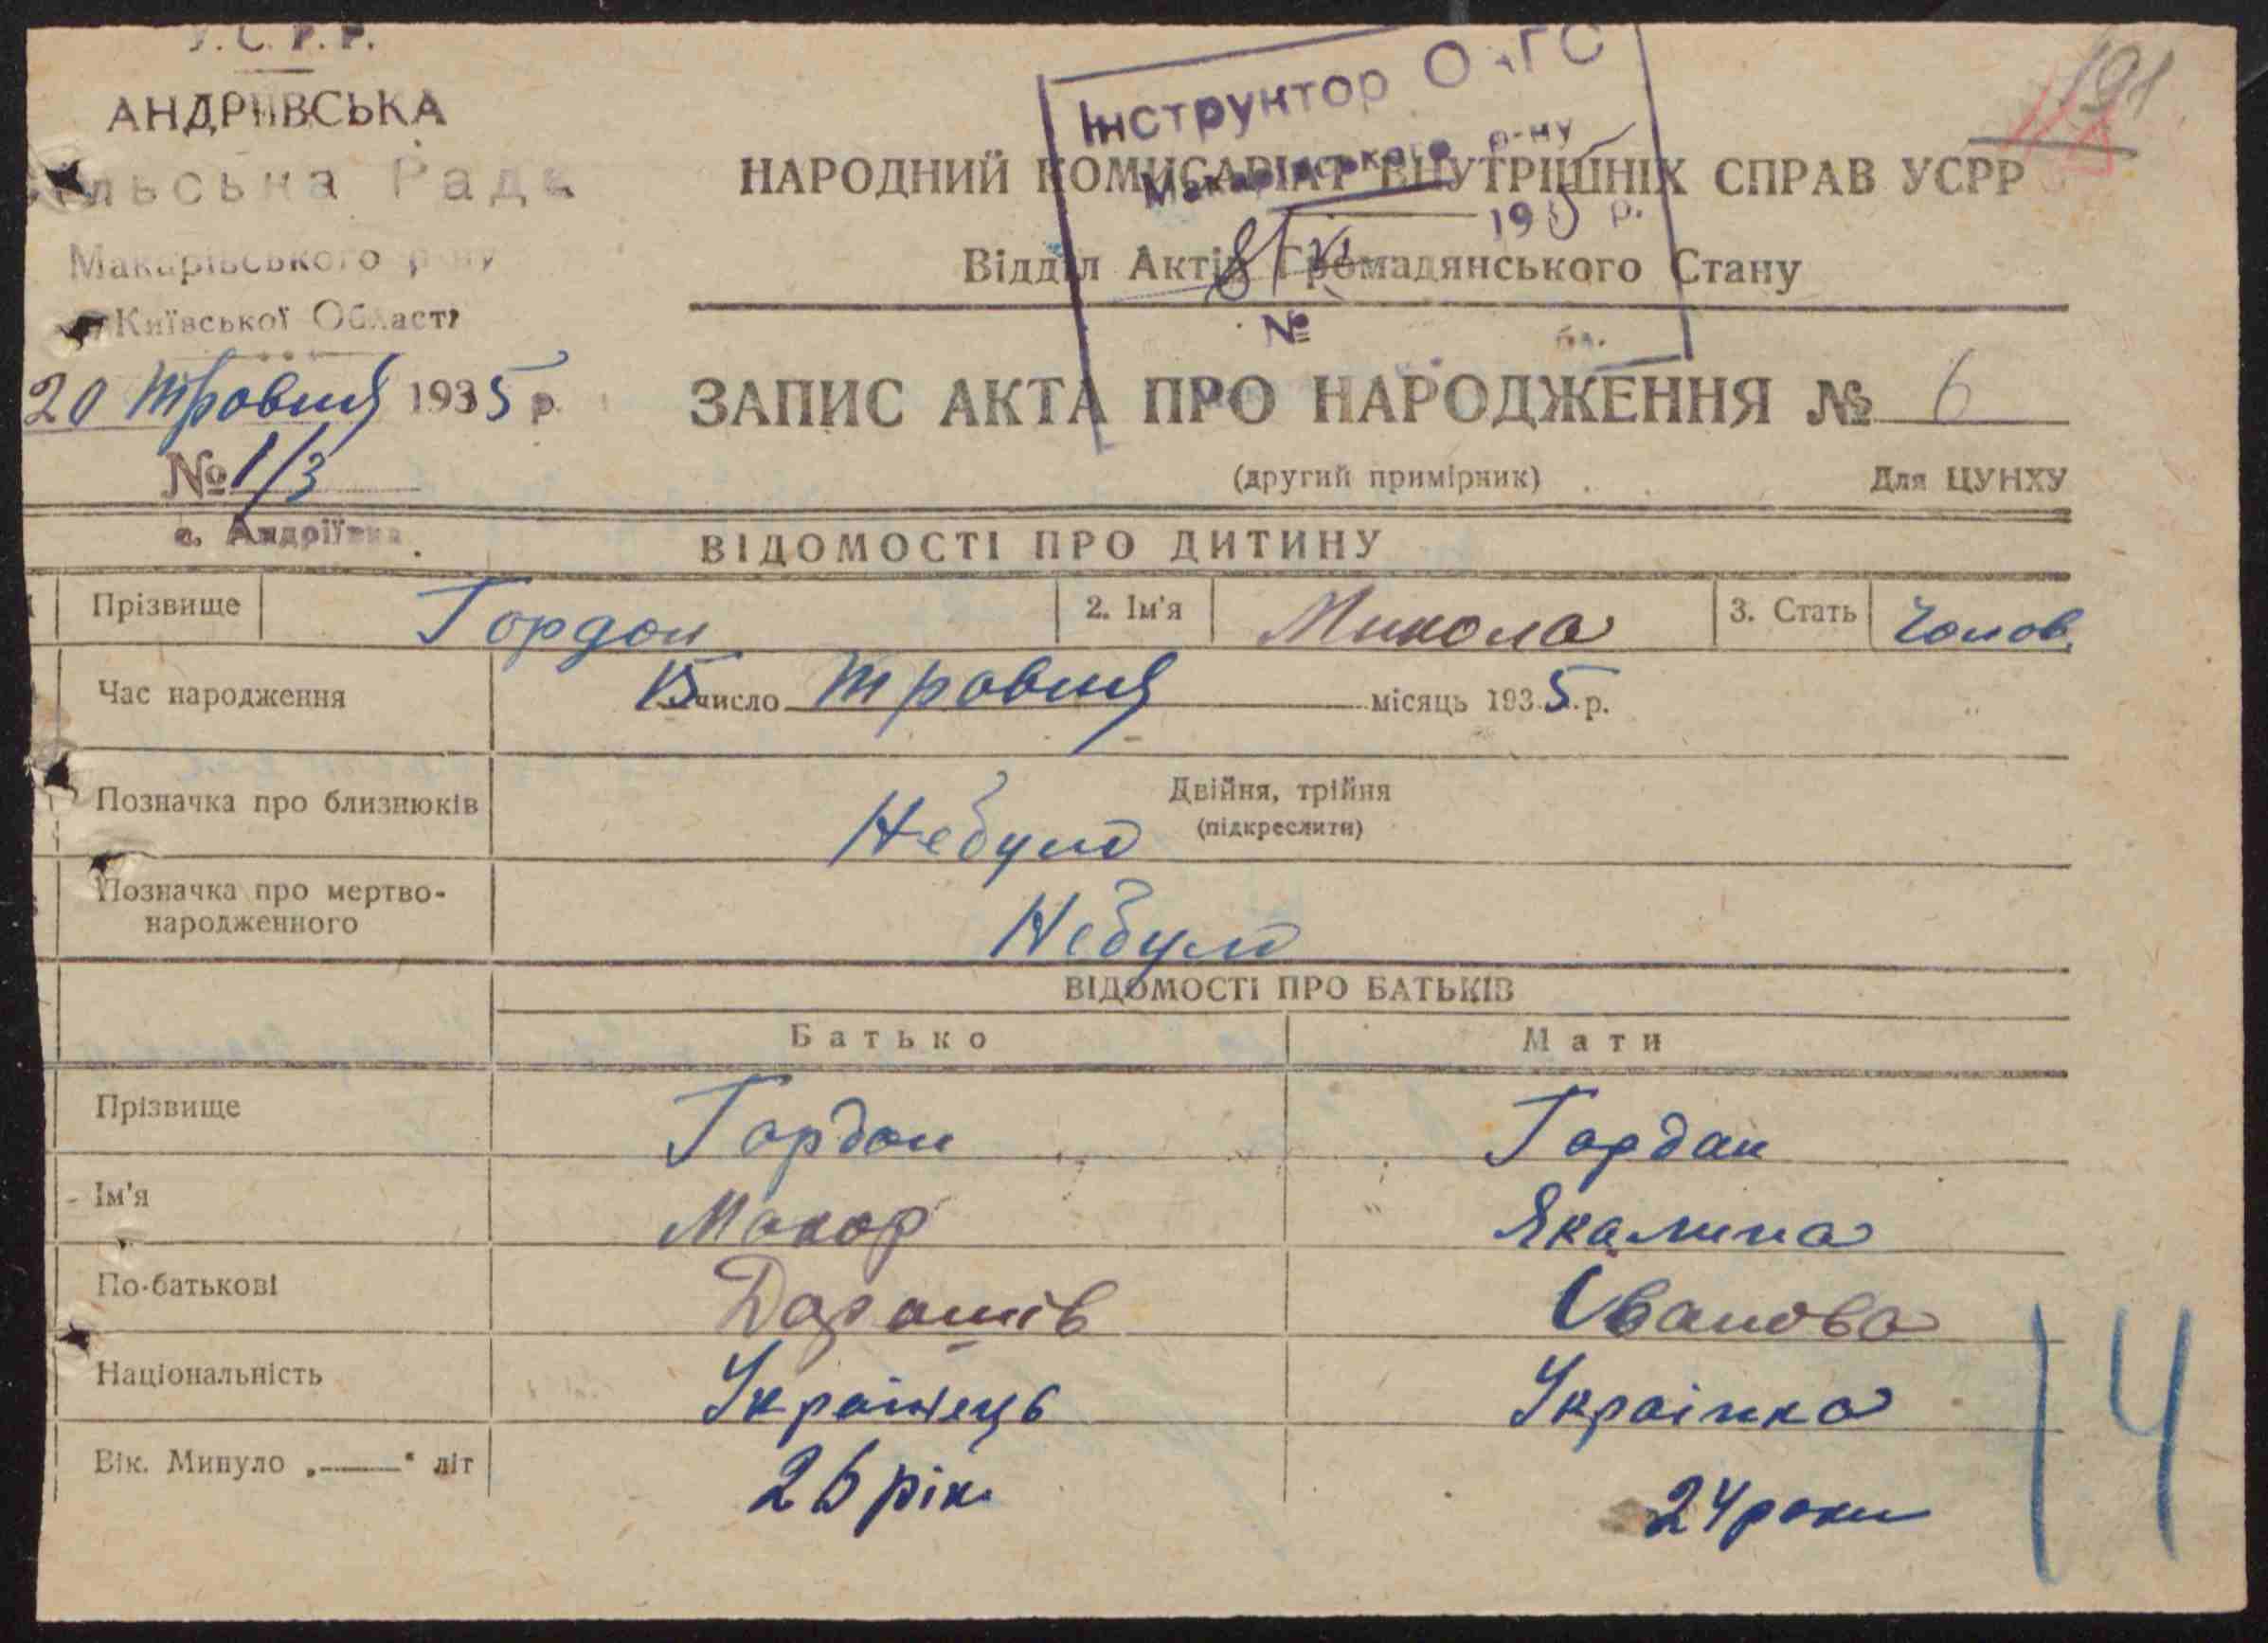 У.С.Р.Р.
АНДРІЇВСЬКА
Сільська Рада
Макарівського р-ну
Київської Області
20 травня 1935 р.
№ 1/3
с. Андріївка
Інструктор ОАГС
Макарівського р-ну
8/XI 1935 р.
№
191
НАРОДНИЙ КОМИСАРІАТ ВНУТРІШНІХ СПРАВ УСРР
Відділ Актів Громадянського Стану
ЗАПИС АКТА ПРО НАРОДЖЕННЯ № 6
(другий примірник) Для ЦУНХУ
ВІДОМОСТІ ПРО ДИТИНУ
Прізвище Гордон 2. Ім'я Микола 3. Стать Чолов.
Час народження 15 число травня місяць 1935 р.
Позначка про близнюків Небуло Двійня, трійня
(підкреслити)
Позначка про мертво-
народженного Небуло
ВІДОМОСТІ ПРО БАТЬКІВ
Батько Мати
Прізвище Гордон Гордон
Ім'я Макар Якалина
По-батькові Іванова
Національність Українець Українка
Вік. Минуло „——" літ 26 рік 24 роки
14